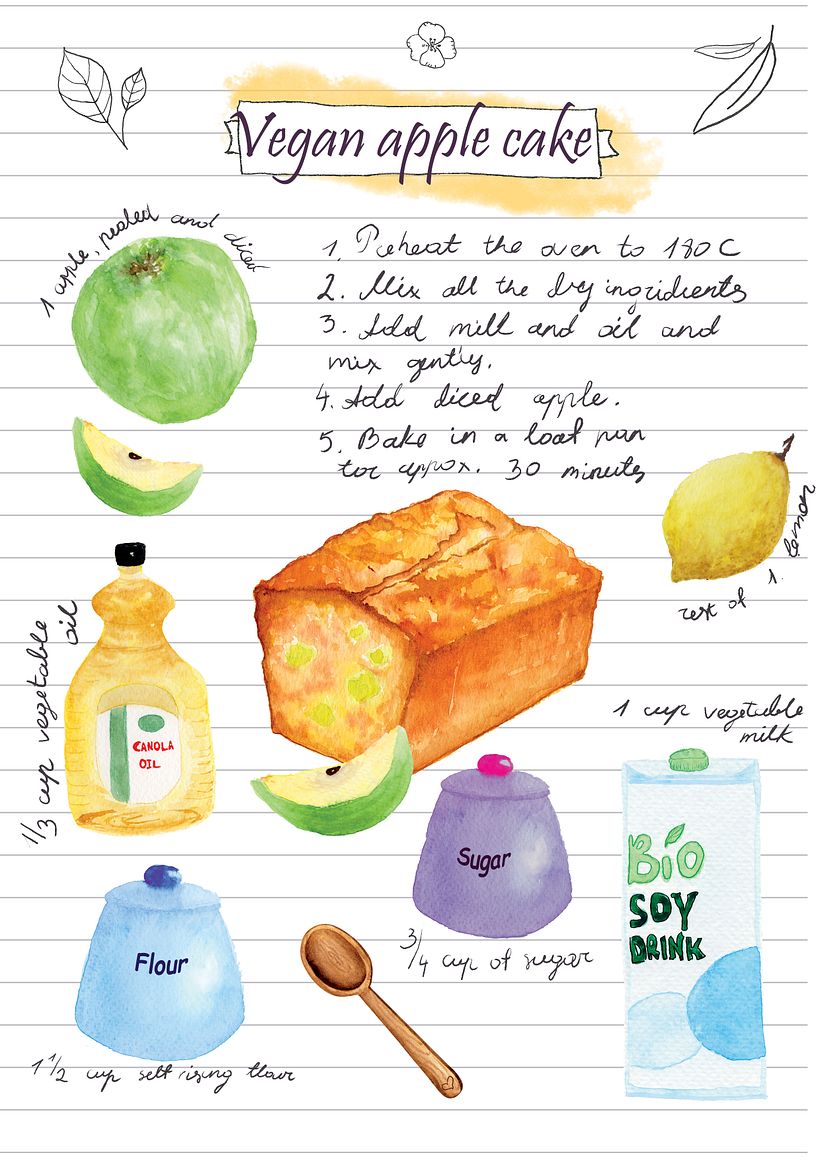 Vegan apple cake
1 apple, pealed and diced
1. Preheat the oven to 180 C
2. Mix all the dry ingridients
3. Add milk and oil and
mix gently.
4. Add diced apple.
5. Bake in a loaf pan
for appox. 30 minutes
zest of 1 lemon
1/3 cup vegetable
oil
CANOLA
OIL
1 cup vegetable
milk
Sugar
3/4 cup of sugar
Bio
SOY
DRINK
Flour
1 1/2 cup self rising flour